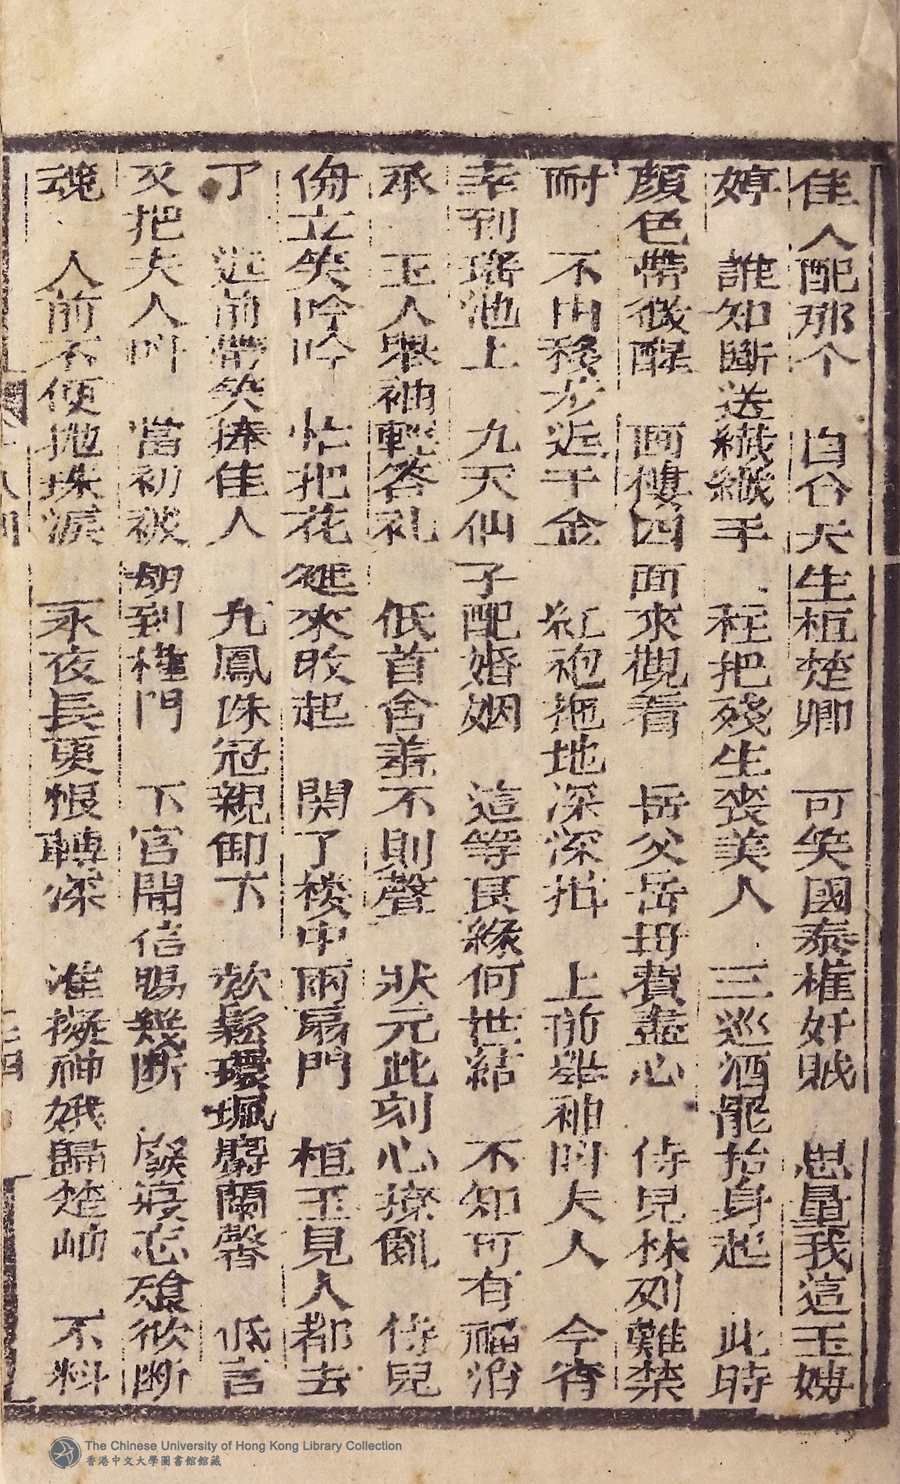 佳人配那个 自合夫生桓楚卿 可笑國泰權奸賊 思量我這玉娉
婷 誰知斷送纖纖手 枉把殘生喪美人 三巡酒罷抬身起 此時
顏色帶微醒 画樓四面來觀看 岳父岳母費盡心 侍兒林列難禁
耐 不由移步近千金 紅袍拖地深深拍 上前舉袖叫夫人 今宵
幸到瑤池上 九天仙子配婚姻 這等良緣何世結 不知可有福消
承 玉人舉袖輕答礼 低首舍羞不則聲 狀元此刻心撩亂 侍兒
傍立笑吟吟 忙把花筵來收起 関了楼中兩扇門 桓玉見人都去
了 近前帶笑捧佳人 九鳳珠冠親卸下 欸鬆環珮麝蘭馨 低言
又把夫人叫 當初被刼到權門 下官聞信腸幾断 廢寢忘飱欲断
魂 人前不便拋珠淚 永夜長更恨轉深 准擬神娥歸楚岫 不料
The Chinese University of Hong Kong Library Collection
香港中文大學圖書館館藏